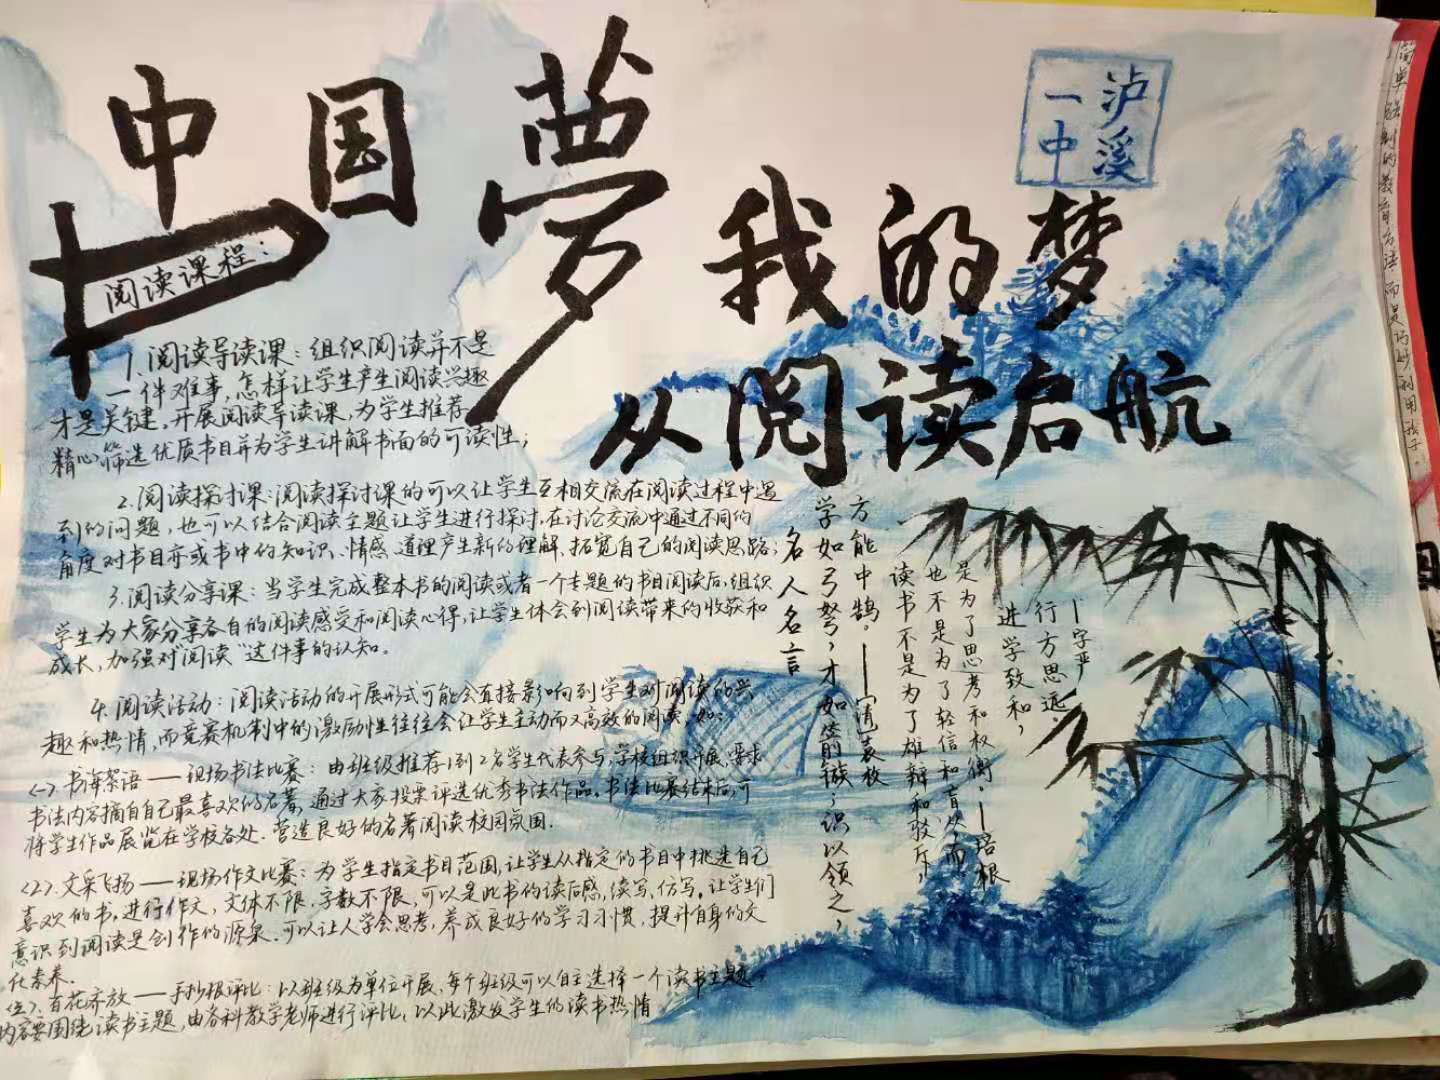 中国夢
我的梦
从阅读启航
泸溪
一中
阅读课程：
1.阅读导读课：组织阅读并不是
一件难事，怎样让学生产生阅读兴趣
才是关键。开展阅读导读课，为学生推荐
精心筛选优质书目并为学生讲解书面的可读性；
2.阅读探讨课：阅读探讨课的可以让学生互相交流在阅读过程中遇
到的问题，也可以结合阅读主题让学生进行探讨，在讨论交流中通过不同的
角度对书目亦或书中的知识、情感、道理产生新的理解，拓宽自己的阅读思路；
3.阅读分享课：当学生完成整本书的阅读或者一个专题的书目阅读后，组织
学生为大家分享各自的阅读感受和阅读心得，让学生体会到阅读带来的收获和
成长，加强对“阅读”这件事的认知。
4.阅读活动：阅读活动的开展形式可能会直接影响到学生对阅读的兴
趣和热情，而竞赛机制中的激励性往往会让学生主动而又高效的阅读。如：
<一>.书海絮语——现场书法比赛：由班级推荐1到2名学生代表参与，学校组织开展，要求
书法内容摘自自己最喜欢的名著，通过大家投票评选优秀书法作品。书法比赛结束后，可
将学生作品展览在学校各处，营造良好的名著阅读校园氛围.
<2>.文采飞扬——现场作文比赛：为学生指定书目范围，让学生从指定的书目中挑选自己
喜欢的书。进行作文，文体不限，字数不限，可以是此书的读后感，续写、仿写。让学生们
意识到阅读是创作的源泉，可以让人学会思考，养成良好的学习习惯，提升自身的文
化素养.
百花齐放——手抄报评比：以班级为单位开展，每个班级可以自主选择一个读书主题，
内容要围绕读书主题，由各科教学老师进行评比，以此激发学生的读书热情
名人名言
学如弓弩，才如箭镞；识以领之，
方能中鹄。——[清]袁枚
读书不是为了雄辩和驳斥，
也不是为了轻信和盲从，而
是为了思考和权衡。——培根
进学致和，
行方思远。
—字严
制的教育方法，而是巧妙利用孩子。